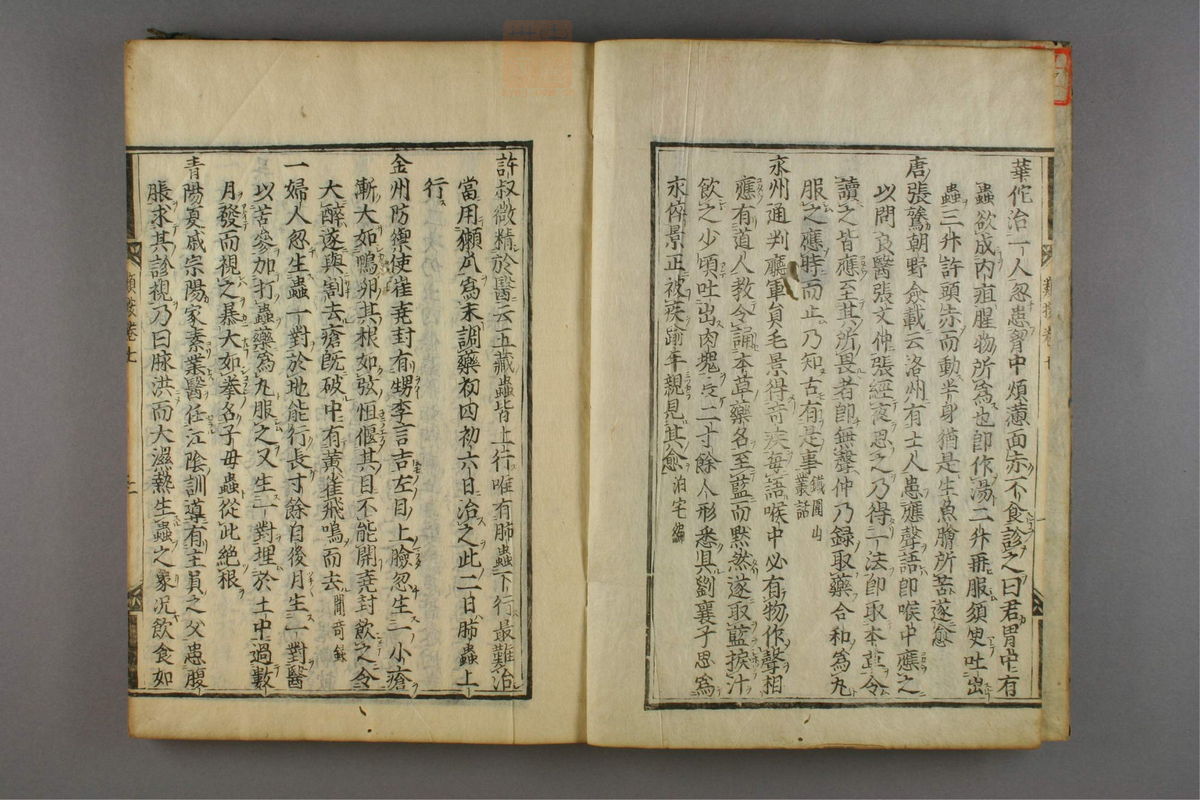 華佗治一人忽患胸中煩懣面赤不食診之曰君胃中有
蟲欲成內疽腥物所爲也即作湯二升再服須臾吐出
蟲三升許頭赤而動半身猶是生魚膾所苦遂愈
唐張鷟朝野僉載云洛州有士人患應聲語即喉中應之
以問良醫張文仲張經夜思之乃得一法即取本草令
讀之皆應至其所畏者即無聲仲乃録取藥合和爲丸
服之應時而止乃知古有是事鐵圍山叢話
永州通判廳軍員毛景得奇疾每語喉中必有物作聲相
應有道人教令誦本草藥名至藍而黙然遂取藍捩汁
飲之少頃吐出肉塊長二寸餘人形悉具劉襄子思爲
永倅景正被疾踰年親見其愈泊宅編
許叔微精於醫云五藏蟲皆上行唯有肺蟲下行最難治
當用獺爪爲末調藥初四初六日治之此二日肺蟲上
行
金州防禦使崔堯封有甥李言吉左目上臉忽生一小瘡
漸大如鴨卵其根如弦恒偃其目不能開堯封飲之令
大醉遂與割去瘡既破中有黃雀飛鳴而去聞奇録
一婦人忽生蟲一對於地能行長寸餘自後月生一對醫
以苦參加打蟲藥爲丸服之又生一對埋於土中過數
月發而視之暴大如拳名子母蟲從此絕根
青陽夏戚宗陽家素業醫任江陰訓導有主員之父患腹
脹求其診視乃曰脉洪而大濕熱生蟲之象況飲食如